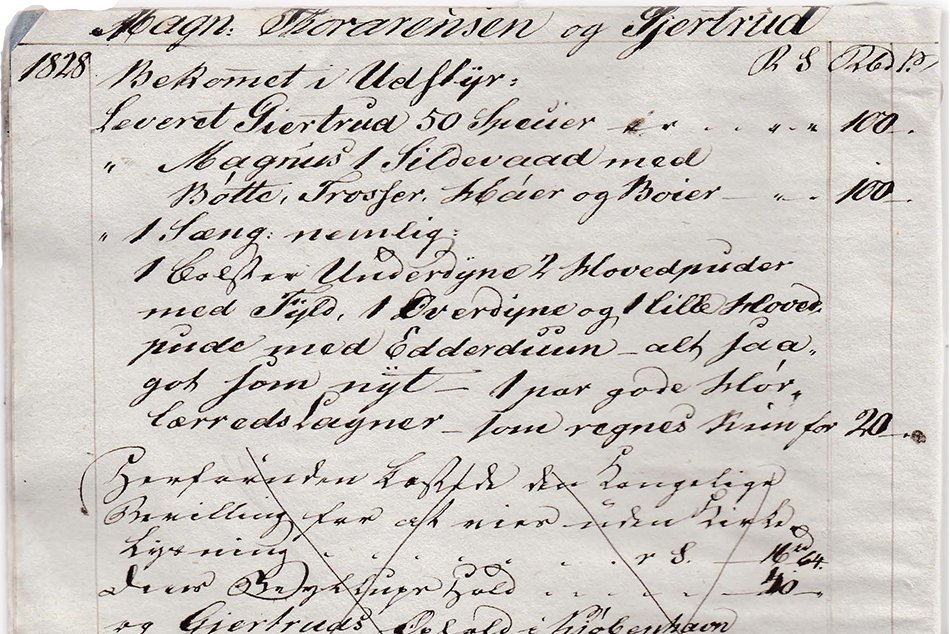 Magn: Thorarensen og Gjertrud
1828 Bekomet i Udstÿr: R S Rbd ß
Leveret Gjertrud 50 Specier er .. „ „ 100.
„ Magnus 1 Sildevaad med
Bøtte, Trosser, Haaer og Boier — „ .. 100
„ 1 Sæng: nemlig:
1 Bolster Underdÿne 2 Hovedpuder
med Fÿld, 1 Overdÿne og 1 lille Hoved,
pude med Edderduun — alt saa„
got som nÿt — 1 par gode Hør„
lærreds Lagner — som regnes kun for 20 —
Herforuden kostede den Kongelige
Bevilling for at vies uden Kirke
Lysning . . . r S. — 16 64.
Deres Bryllups Hold . . . . — 40 .
og Gjertruds Ophold i Kiøbenhavn